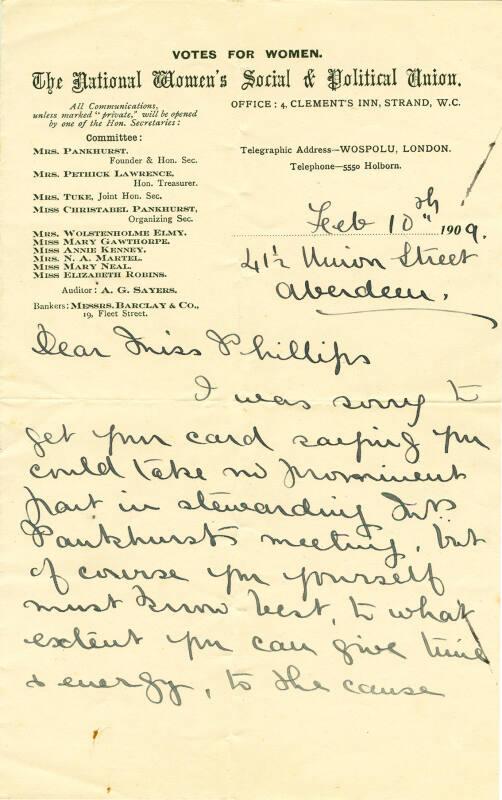 VOTES FOR WOMEN.
The National Women's Social & Political Union.
All Communications,
unless marked "private," will be opened
by one of the Hon. Secretaries:
OFFICE: 4, CLEMENT'S INN, STRAND, W.C.
Committee:
MRS. PANKHURST,
Founder & Hon. Sec.
MRS. PETHICK LAWRENCE,
Hon. Treasurer.
MRS. TUKE, Joint Hon. Sec.
MISS CHRISTABEL PANKHURST,
Organizing Sec.
MRS. WOLSTENHOLME ELMY.
MISS MARY GAWTHORPE.
MISS ANNIE KENNEY.
MRS. N. A. MARTEL.
MISS MARY NEAL.
MISS ELIZABETH ROBINS.
Auditor: A. G. SAYERS.
Bankers: MESSRS. BARCLAY & CO.,
19, Fleet Street.
Telegraphic Address—WOSPOLU, LONDON.
Telephone—5550 Holborn.
Feb 10th 1909.
41½ Union Street
Aberdeen.
Dear Miss Phillips
I was sorry to
get your card saying you
could take no prominent
part in stewarding Mrs
Pankhursts meeting, but
of course you yourself
must know best, to what
extent you can give time
& energy, to the cause